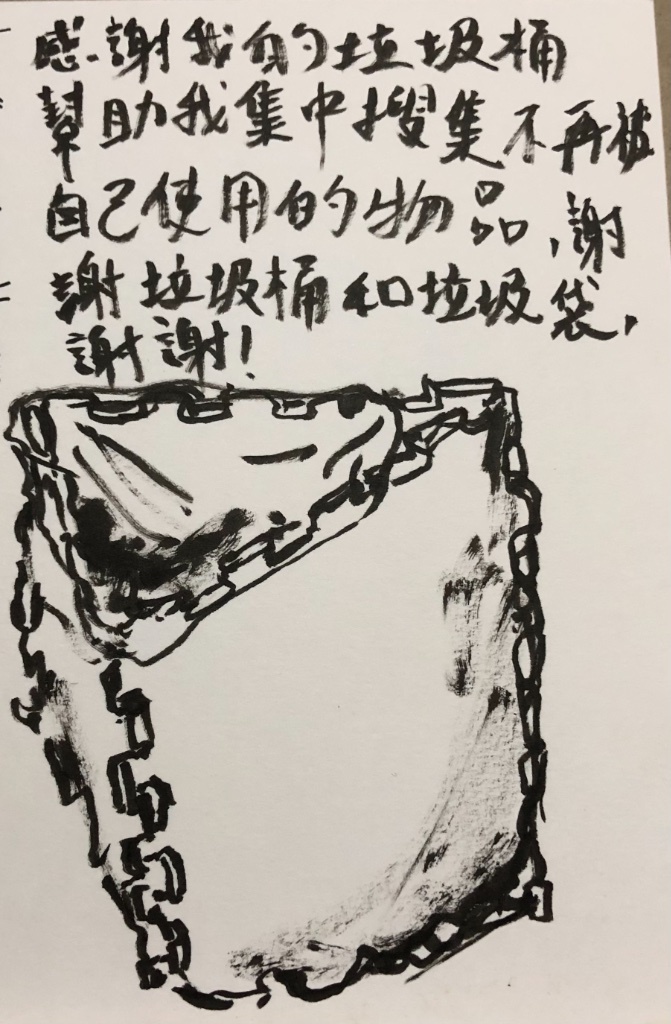 感謝我的垃圾桶
幫助我集中搜集不再被
自己使用的物品,謝
謝垃圾桶和垃圾袋,
謝謝!